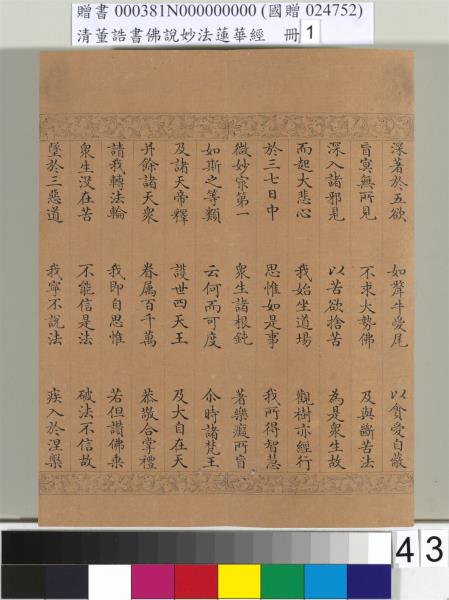 贈書 000381N000000000 (國贈 024752)
清董誥書佛說妙法蓮華經 冊 1
深著於五欲 如犛牛愛尾 以貪愛自蔽
盲冥無所見 不求大勢佛 及與斷苦法
深入諸邪見 以苦欲捨苦 為是眾生故
而起大悲心 我始坐道場 觀樹亦經行
於三七日中 思惟如是事 我所得智慧
微妙寂第一 眾生諸根鈍 著樂癡所盲
如斯之等類 云何而可度 尒時諸梵王
及諸天帝釋 護世四天王 及大自在天
并餘諸天衆 眷屬百千萬 恭敬合掌禮
請我轉法輪 我即自思惟 若但讚佛乘
衆生沒在苦 不能信是法 破法不信故
墜於三惡道 我寧不說法 疾入於涅槃
43